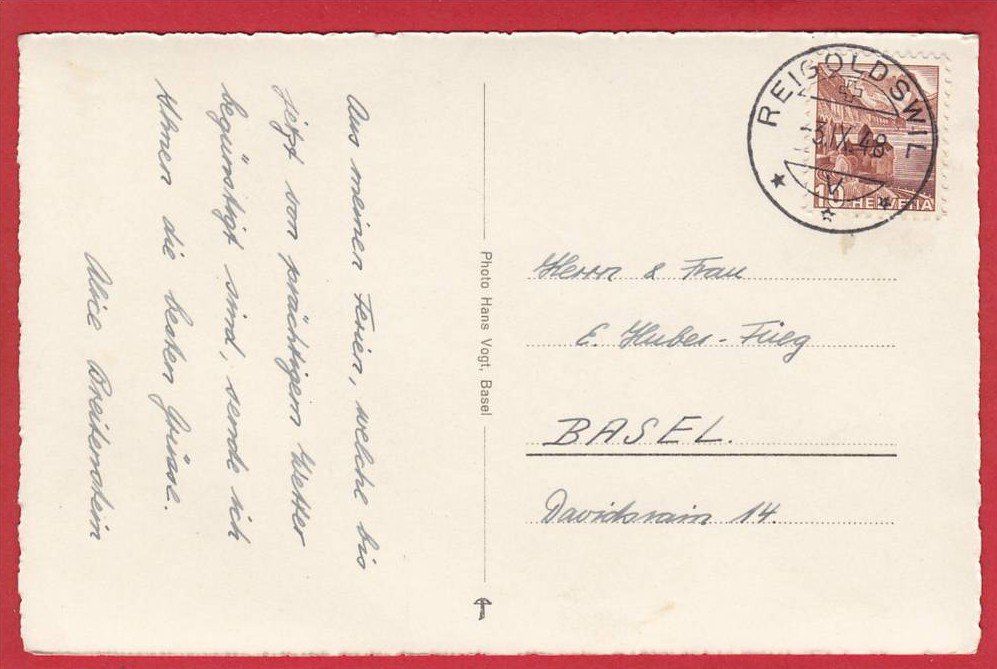 Aus meinen Ferien, welche bis
jetzt von prächtigem Wetter
begünstigt sind, sende ich
Ihnen die besten Grüsse.
Alice Breitenstein
Photo Hans Vogt, Basel
REIGOLDSWIL
-3.IX.48
10 HELVETIA
Herrn & Frau
E. Huber-Flieg
BASEL.
Davidsrain 14.